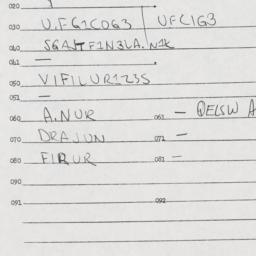 020
030 U.FG1COG3 | UFCIG3
040 SGAJTF1N3LA.N1K
041 —
050 VIFILUR1235
051 —
060 A.NUR 061 — QELSW A
070 DRAJUN 071 —
080 FIRUR 081 —
090
091 092